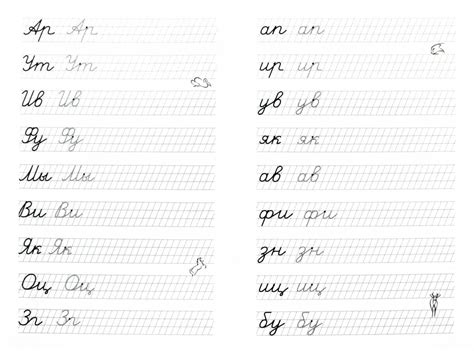 Ар Ар
Ут Ут
Ив Ив
Фу Фу
Мы Мы
Ви Ви
Як Як
Оц Оц
Зг Зг
ап ап
ир ир
ув ув
як як
ав ав
фи фи
зн зн
шц шц
бу бу